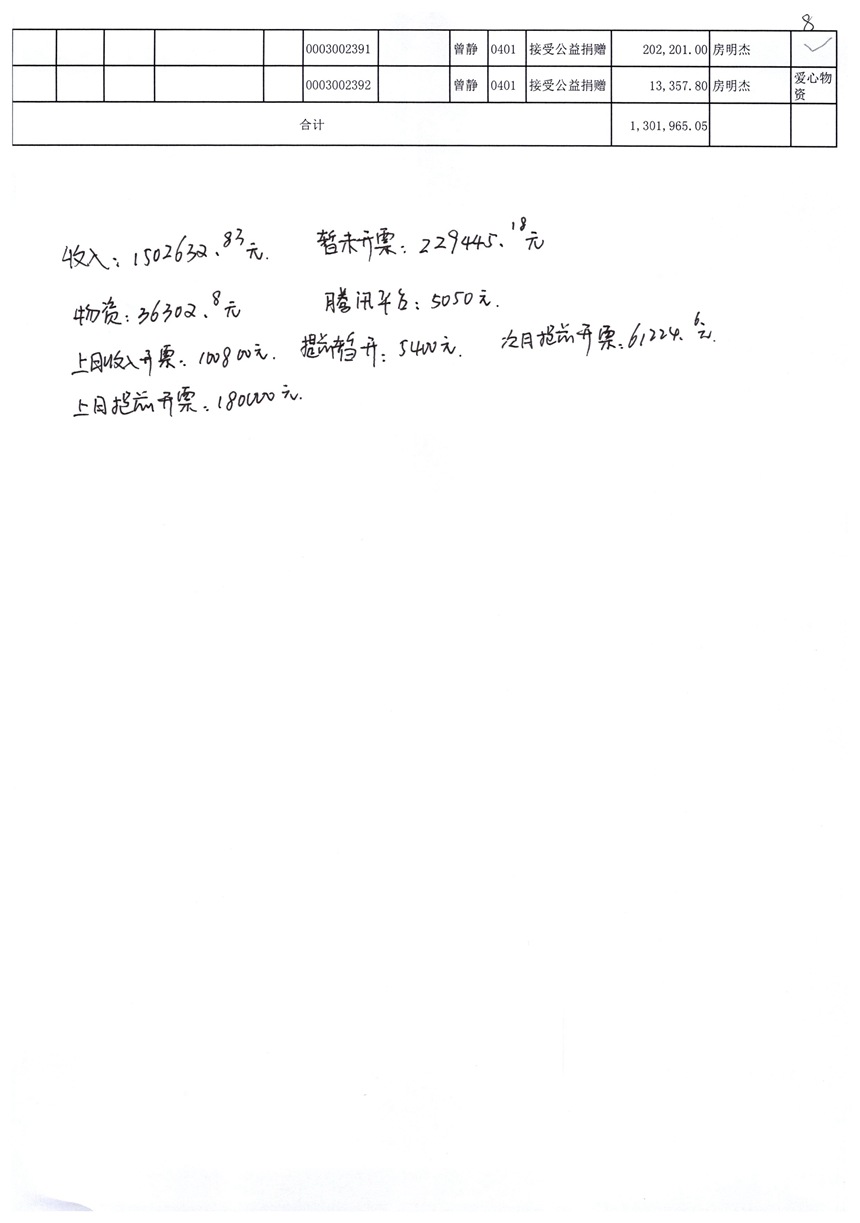 8
0003002391 曾静 0401 接受公益捐赠 202,201.00 房明杰
0003002392 曾静 0401 接受公益捐赠 13,357.80 房明杰 爱心物资
合计 1,301,965.05
收入：1502632.83元. 暂未开票：229445.18元
物资：36302.8元 腾讯平台：5050元.
上月收入开票：100800元. 提前暂开：5400元. 次月提前开票：61224.6元.
上月提前开票：180000元.